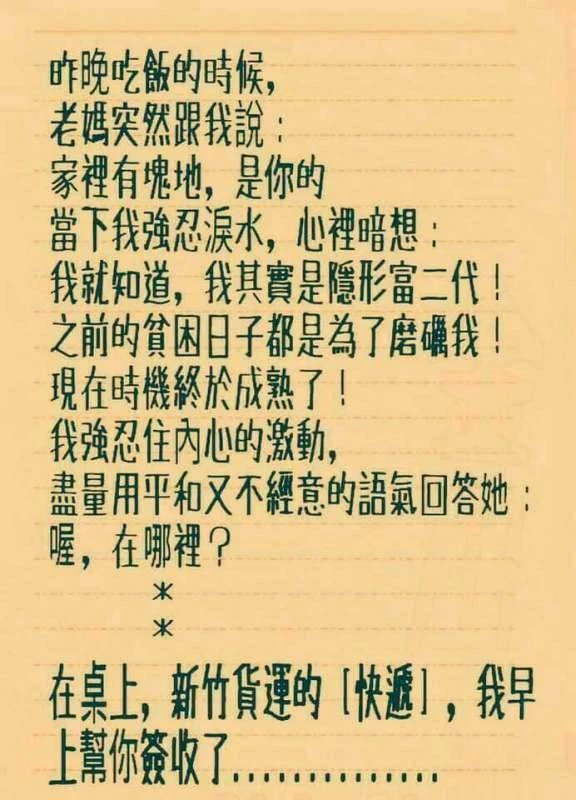 昨晚吃飯的時候,
老媽突然跟我說:
家裡有塊地, 是你的
當下我強忍淚水, 心裡暗想:
我就知道, 我其實是隱形富二代!
之前的貧困日子都是為了磨礪我!
現在時機終於成熟了!
我強忍住內心的激動,
盡量用平和又不經意的語氣回答她:
喔, 在哪裡?
*
*
在桌上, 新竹貨運的[快遞], 我早
上幫你簽收了...............